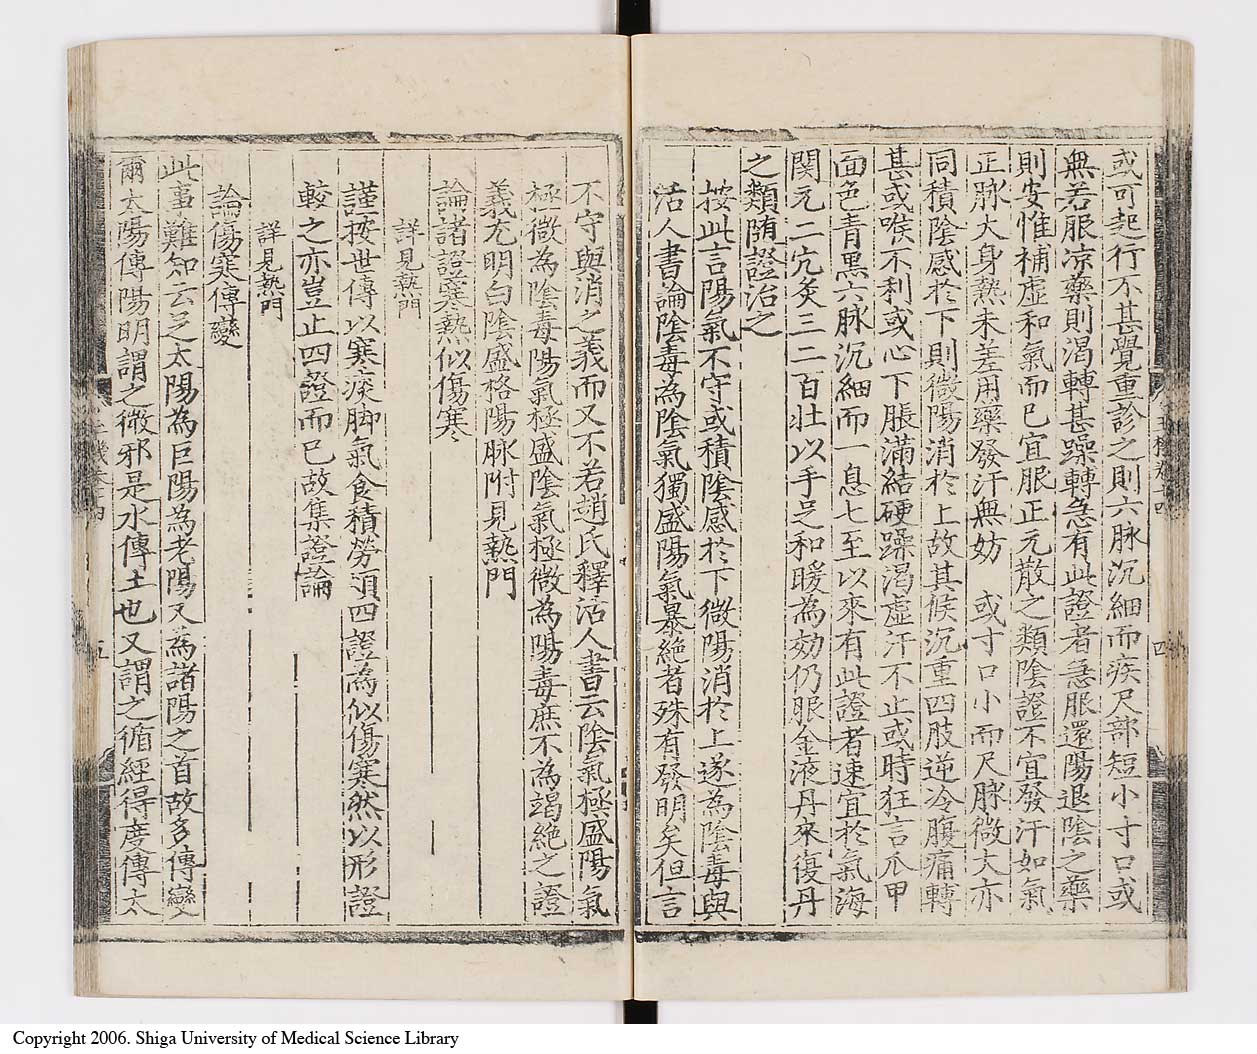 或可起行不甚覺重診之則六脉沉細而疾尺部短小寸口或
無若服凉藥則渴轉甚躁轉急有此證者急服還陽退陰之藥
則安惟補虛和氣而已宜服正元散之類陰證不宜發汗如氣
正脉大身熱未差用藥發汗無妨 或寸口小而尺脉微大亦
同積陰感於下則微陽消於上故其候沉重四肢逆冷腹痛轉
甚或喉不利或心下脹滿結硬躁渴虛汗不止或時狂言爪甲
面色青黑六脉沉細而一息七至以來有此證者速宜於氣海
関元二穴灸三二百壯以手足和暖為効仍服金液丹來復丹
之類随證治之
按此言陽氣不守或積陰感於下微陽消於上遂為陰毒與
活人書論陰毒為陰氣獨盛陽氣暴絶者殊有發明矣但言
不守與消之義而又不若趙氏釋活人書云陰氣極盛陽氣
極微為陰毒陽氣極盛陰氣極微為陽毒庶不為竭絶之證
義尤明白陰盛格陽脉附見熱門
論諸證寒熱似傷寒
詳見熱門
謹按世傳以寒痰脚氣食積勞煩四證為似傷寒然以形證
較之亦豈止四證而已故集證論
詳見熱門
論傷寒傳變
此事難知云足太陽為巨陽為老陽又為諸陽之首故多傳變
爾太陽傳陽明謂之微邪是水傳土也又謂之循經得度傳太
四
五